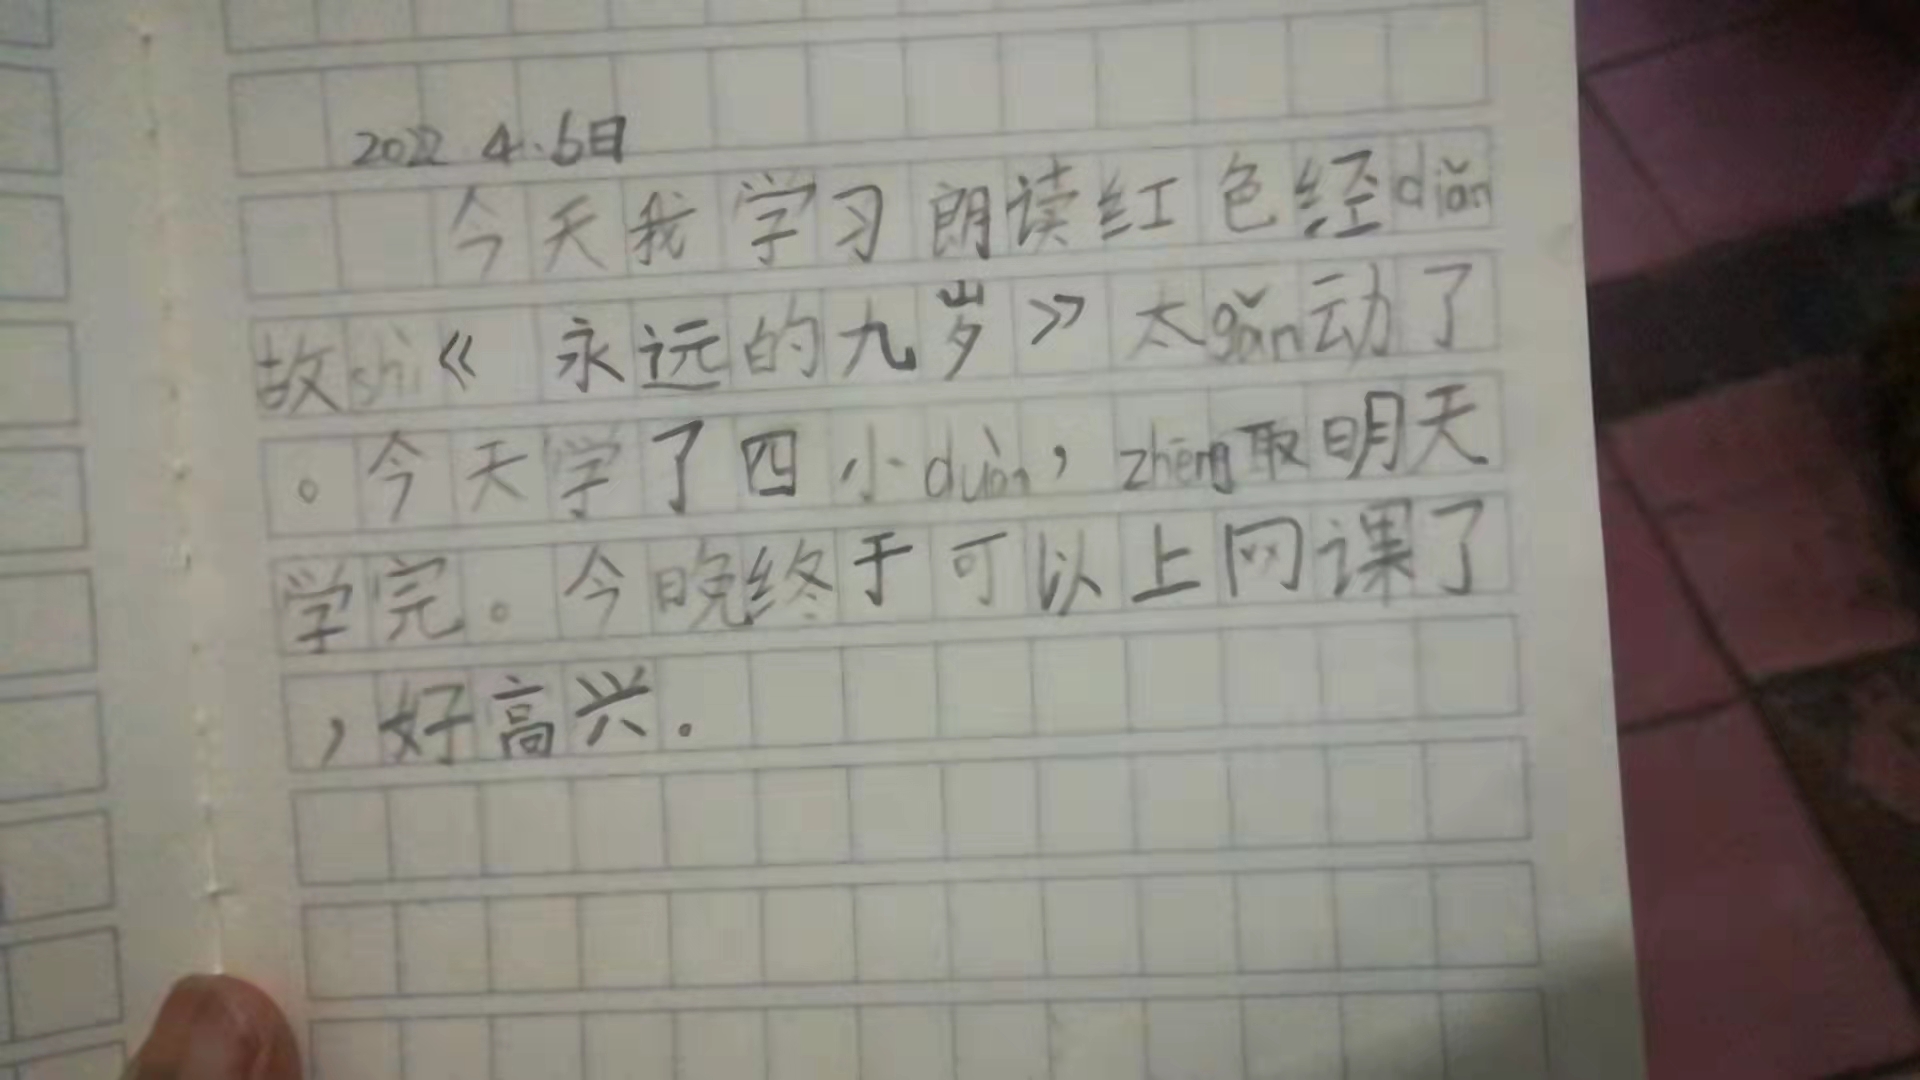 2022 4.6日
今天我学习朗读红色经diǎn
故shi《永远的九岁》太gǎn动了
。今天学了四小duàn，zhēng取明天
学完。今晚终于可以上网课了
，好高兴.